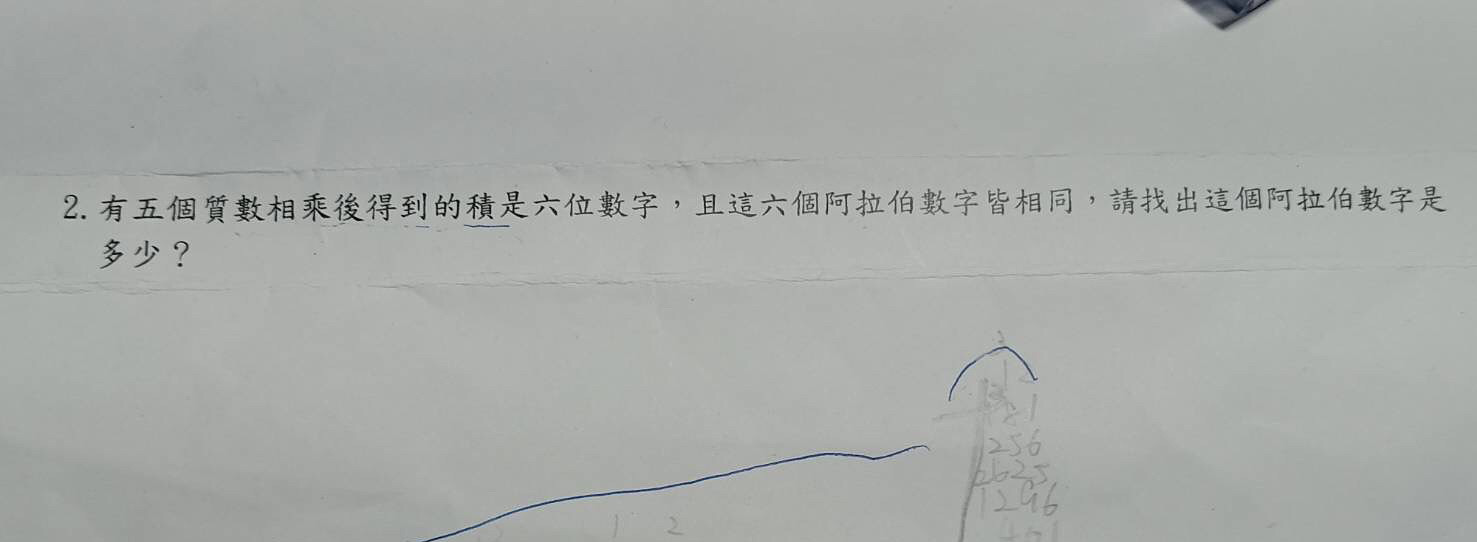 2. 有五個質數相乘後得到的積是六位數字，且這六個阿拉伯數字皆相同，請找出這個阿拉伯數字是
多少？
256
2625
1296
1 2